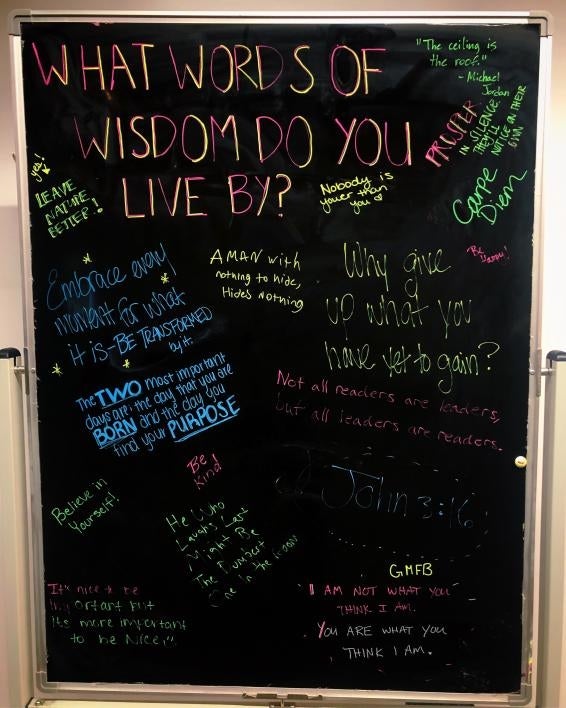 WHAT WORDS OF
WISDOM DO YOU
LIVE BY?
"The ceiling is
the roof."
- Michael
Jordan
PROSPER
IN SILENCE
THEY'LL
NOTICE ON THEIR
OWN
yes!
LEAVE
NATURE
BETTER!
Nobody is
youer than
you
Carpe
Diem
Embrace every
moment for what
it is-BE TRANSFORMED
by it.
A MAN with
nothing to hide,
Hides nothing
Why give
up what you
have yet to gain?
Be
The TWO most important
days are: the day that you are
BORN and the day you
find your PURPOSE
Not all readers are leaders,
but all leaders are readers.
Be
Kind!
Believe in
Yourself!
He Who
Laughs Last
Might Be
The Dumbest
One In the Room
John 3:16
GMFB
I AM NOT WHAT YOU
THINK I AM.
YOU ARE WHAT YOU
THINK I AM.
It's nice to be
important but
its more important
to be Nice!!